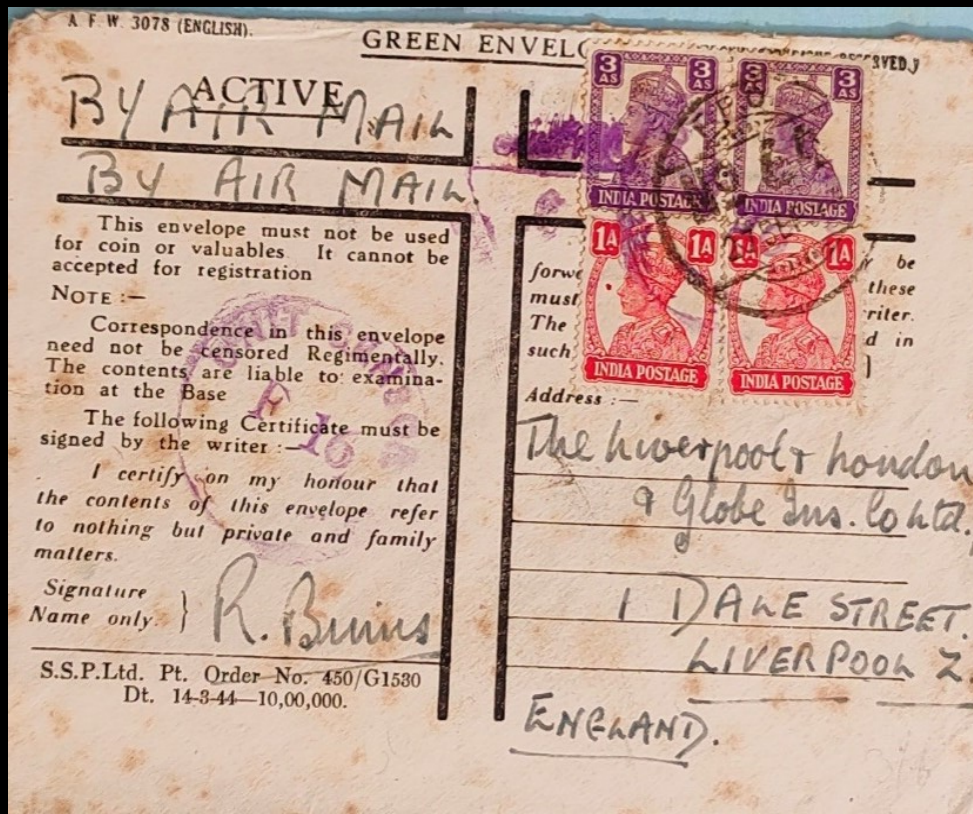 A. F. W. 3078 (ENGLISH).
GREEN ENVELO
ACTIVE
BY AIR MAIL
BY AIR MAIL.
This envelope must not be used
for coin or valuables. It cannot be
accepted for registration
NOTE :—
Correspondence in this envelope
need not be censored Regimentally.
The contents are liable to examina-
tion at the Base
The following Certificate must be
signed by the writer :—
I certify on my honour that
the contents of this envelope refer
to nothing but private and family
matters.
Signature
Name only. }
R. Burns
S.S.P.Ltd. Pt. Order No. 450/G1530
Dt. 14-3-44—10,00,000.
3 AS 3 AS
INDIA POSTAGE
3 AS 3 AS
INDIA POSTAGE
1A 1A
INDIA POSTAGE
1A 1A
INDIA POSTAGE
forwe
be
must
these
The
riter.
such
d in
Address :—
The Liverpool & London
& Globe Ins. Co Ltd.,
1 DALE STREET.
LIVERPOOL 2.
ENGLAND.